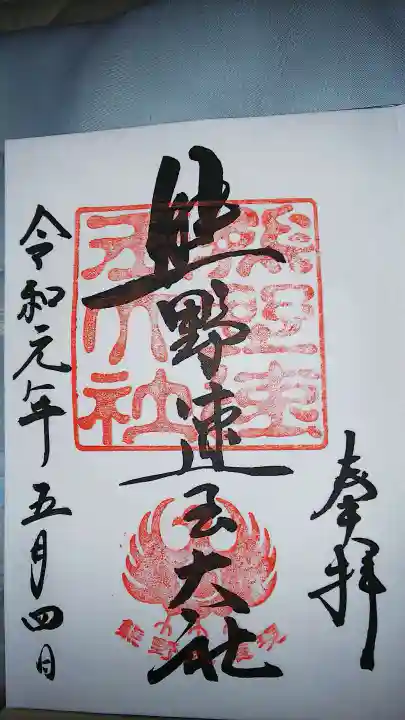 奉拝
熊野速玉大社
熊野速玉大社
令和元年五月四日